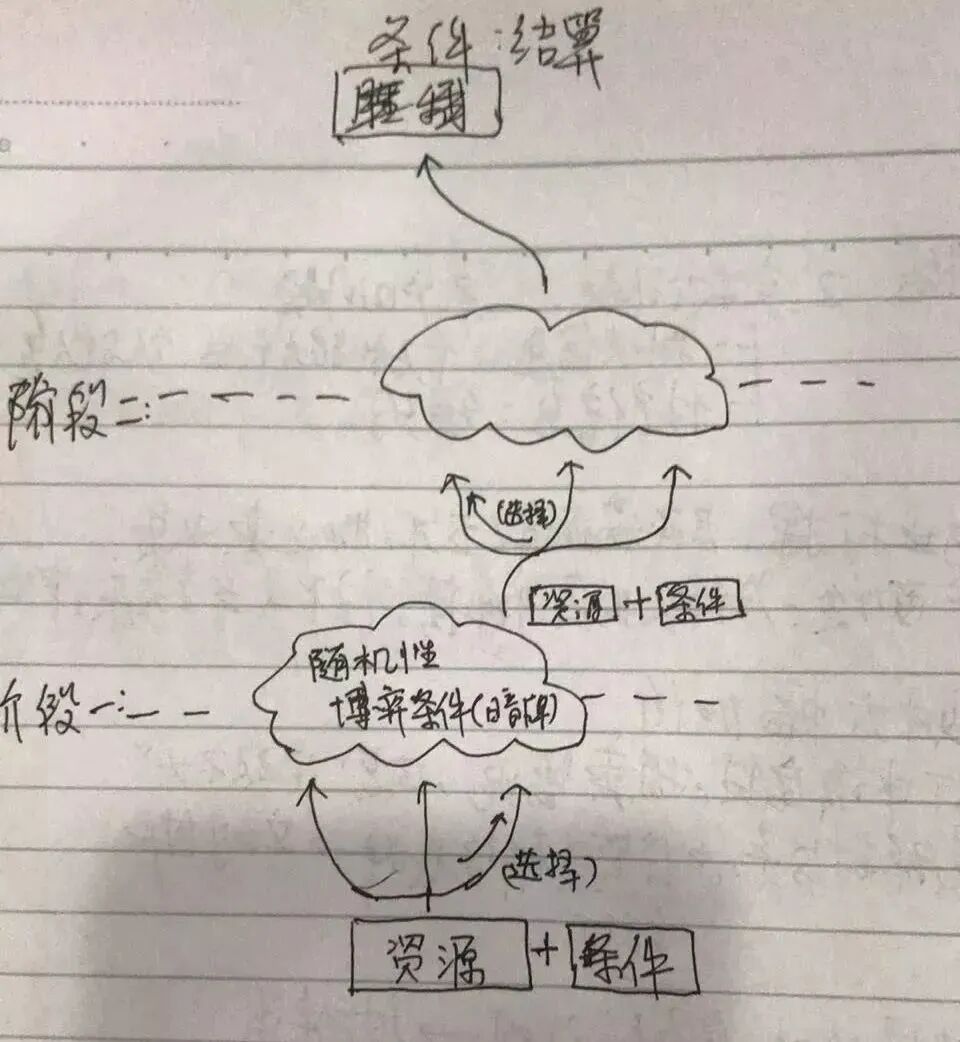 条件:结算
胜利
阶段二:
(选择)
资源 + 条件
随机性
阶段一:
博弈条件(暗牌)
(选择)
资源 + 条件